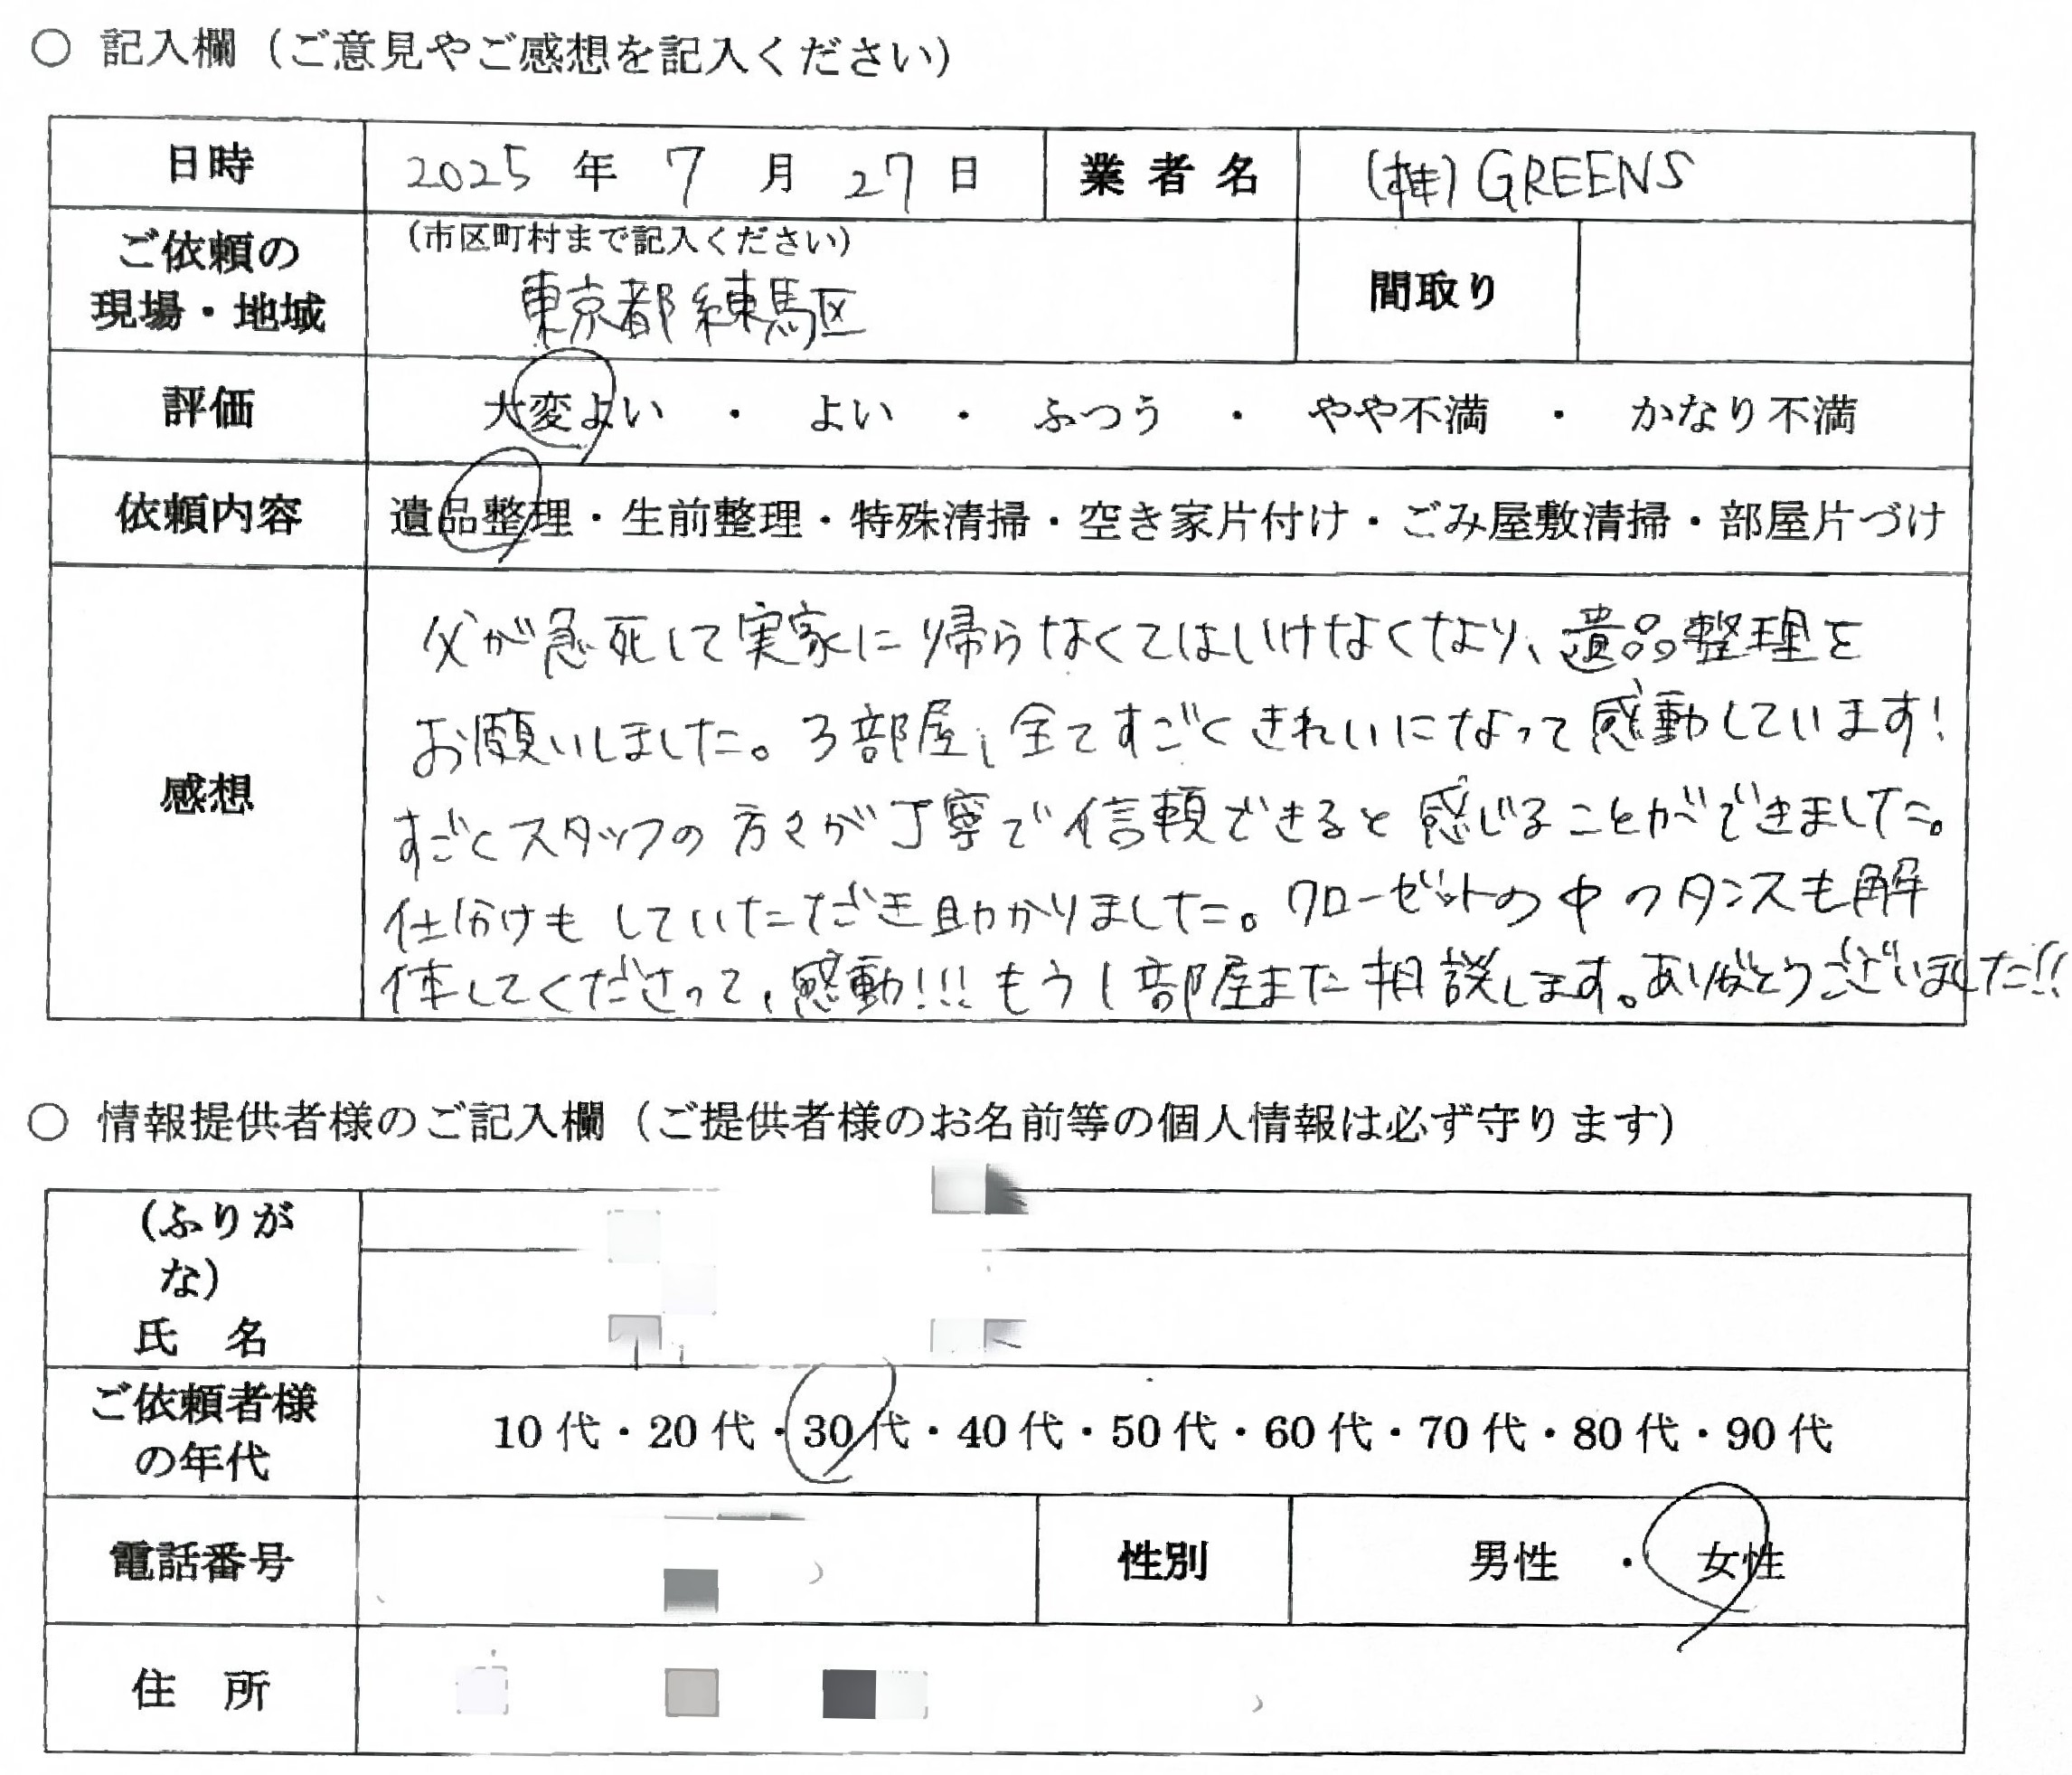 ○ 記入欄（ご意見やご感想を記入ください）
日時 2025 年 7 月 27 日 業者名 (株) GREENS
ご依頼の現場・地域 （市区町村まで記入ください） 間取り
東京都練馬区
評価 大変よい ・ よい ・ ふつう ・ やや不満 ・ かなり不満
依頼内容 遺品整理・生前整理・特殊清掃・空き家片付け・ごみ屋敷清掃・部屋片づけ
感想
父が急死して実家に帰らなくてはいけなくなり、遺品整理を
お願いしました。3部屋、全てすごくきれいになって感動しています!
すごくスタッフの方々が丁寧で信頼できると感じることができました。
仕分けもしていただき助かりました。クローゼットの中のタンスも解
体してくださって、感動!!!もう1部屋また相談します。ありがとうございました!!
○ 情報提供者様のご記入欄（ご提供者様のお名前等の個人情報は必ず守ります）
（ふりが
な）
氏　名
ご依頼者様
の年代 10 代・20 代・30 代・40 代・50 代・60 代・70 代・80 代・90 代
電話番号 性別 男性 ・ 女性
住　所